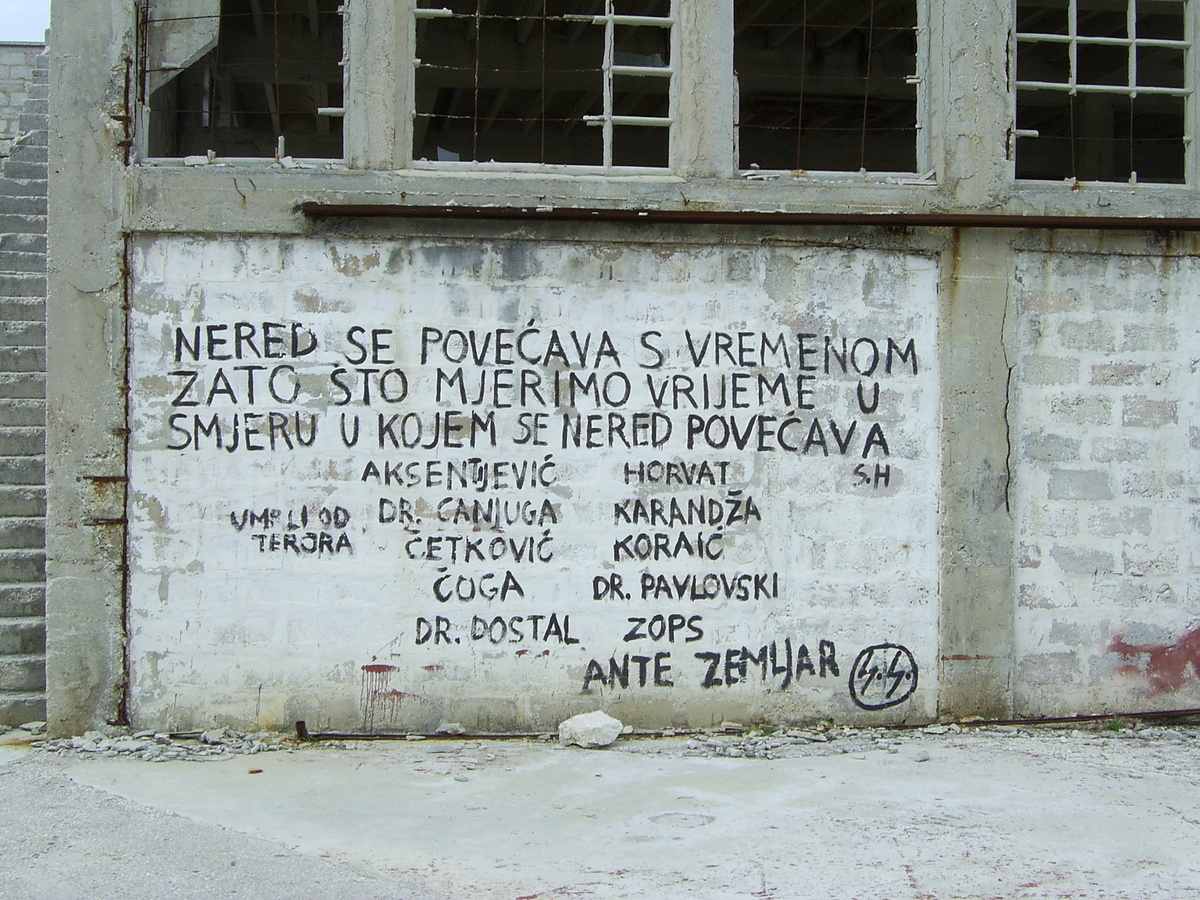 NERED SE POVEĆAVA S VREMENOM
ZATO ŠTO MJERIMO VRIJEME U
SMJERU U KOJEM SE NERED POVEĆAVA
AKSENTIJEVIĆ HORVAT S.H
UMRLI OD DR. CANJUGA KARANDŽA
TERORA ČETKOVIĆ KORAIĆ
ČOGA DR. PAVLOVSKI
DR. DOSTAL ZOPS
ANTE ZEMLJAR